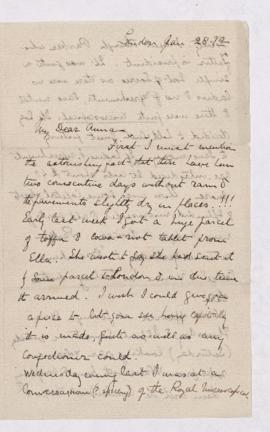 London Jan 28.92
My Dear Annan
First I must mention
the astonishing fact that there have been
two consecutive days without rain &
the pavements slightly dry in places. !!!
Early last week I got a huge parcel
of toffee & cocoa-nut tablet from
Ella. She wrote to say she had sent it
by parcel to London & in due time
it arrived. I wish I could give you
a piece to let you see how
it is made, quite as well as any
Confectioner could.
Wednesday evening last I was at a
Conversazione (? spelling) of the Royal Microscopical